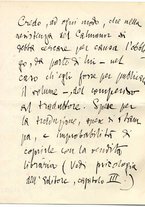 Credo, ad ogni modo, che nella
resistenza del Calmann si
debba cercare per causa l'obbli-
go, da parte di lui – nel
caso ch'egli forse per pubblicare
il volume –, del compenso
al traduttore. Spese per
la traduzione, spese di stam-
pa, e improbabilità di
coprirle con la vendita
libraria (Vedi psicologia
dell'Editore, capitolo III).